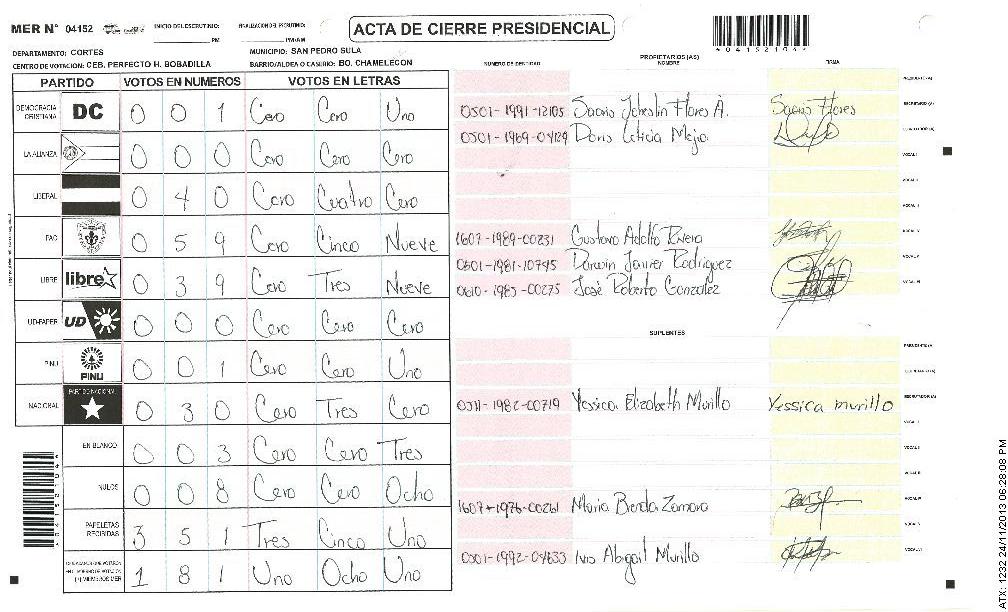 MER N° 04152 INICIO DEL ESCRUTINIO: FINALIZACION DEL ESCRUTINIO: ACTA DE CIERRE PRESIDENCIAL
PM PM/AM
DEPARTAMENTO: CORTES MUNICIPIO: SAN PEDRO SULA
CENTRO DE VOTACION: CEB. PERFECTO H. BOBADILLA BARRIO/ALDEA O CASERIO: BO. CHAMELECON
PARTIDO VOTOS EN NUMEROS VOTOS EN LETRAS
DEMOCRACIA CRISTIANA DC 0 0 1 Cero Cero Uno
LA ALIANZA 0 0 0 Cero Cero Cero
LIBERAL 0 4 0 Cero Cuatro Cero
PAC 0 5 9 Cero Cinco Nueve
LIBRE libre 0 3 9 Cero Tres Nueve
UD-FAPER UD 0 0 0 Cero Cero Cero
PINU PINU 0 0 1 Cero Cero Uno
NACIONAL PARTIDO NACIONAL 0 3 0 Cero Tres Cero
EN BLANCO 0 0 3 Cero Cero Tres
NULOS 0 0 8 Cero Cero Ocho
PAPELETAS RECIBIDAS 3 5 1 Tres Cinco Uno
1 8 1 Uno Ocho Uno
PROPIETARIOS (AS)
NUMERO DE IDENTIDAD NOMBRE FIRMA
PRESIDENTE (A)
0501-1991-12105 Flores A. Flores SECRETARIO (A)
0501-1969-04129 Doris Leticia Mejia ESCRUTADOR (A)
VOCAL I
VOCAL II
VOCAL III
1607-1989-00231 Gustavo Adolfo Rivera VOCAL IV
0501-1981-10745 Darwin Javier Rodriguez VOCAL V
0610-1983-00275 José Roberto Gonzalez VOCAL VI
SUPLENTES
PRESIDENTE (A)
SECRETARIO (A)
0511-1982-00719 Yessica Elizabeth Murillo Yessica murillo ESCRUTADOR (A)
VOCAL I
VOCAL II
VOCAL III
1607-1976-00261 Maria Zamora VOCAL IV
VOCAL V
0501-1992-04633 Abigail Murillo VOCAL VI
ATX: 1232 24/11/2013 06:28:08 PM